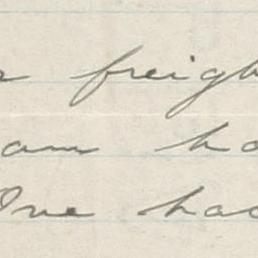 freigh
am ha
One had